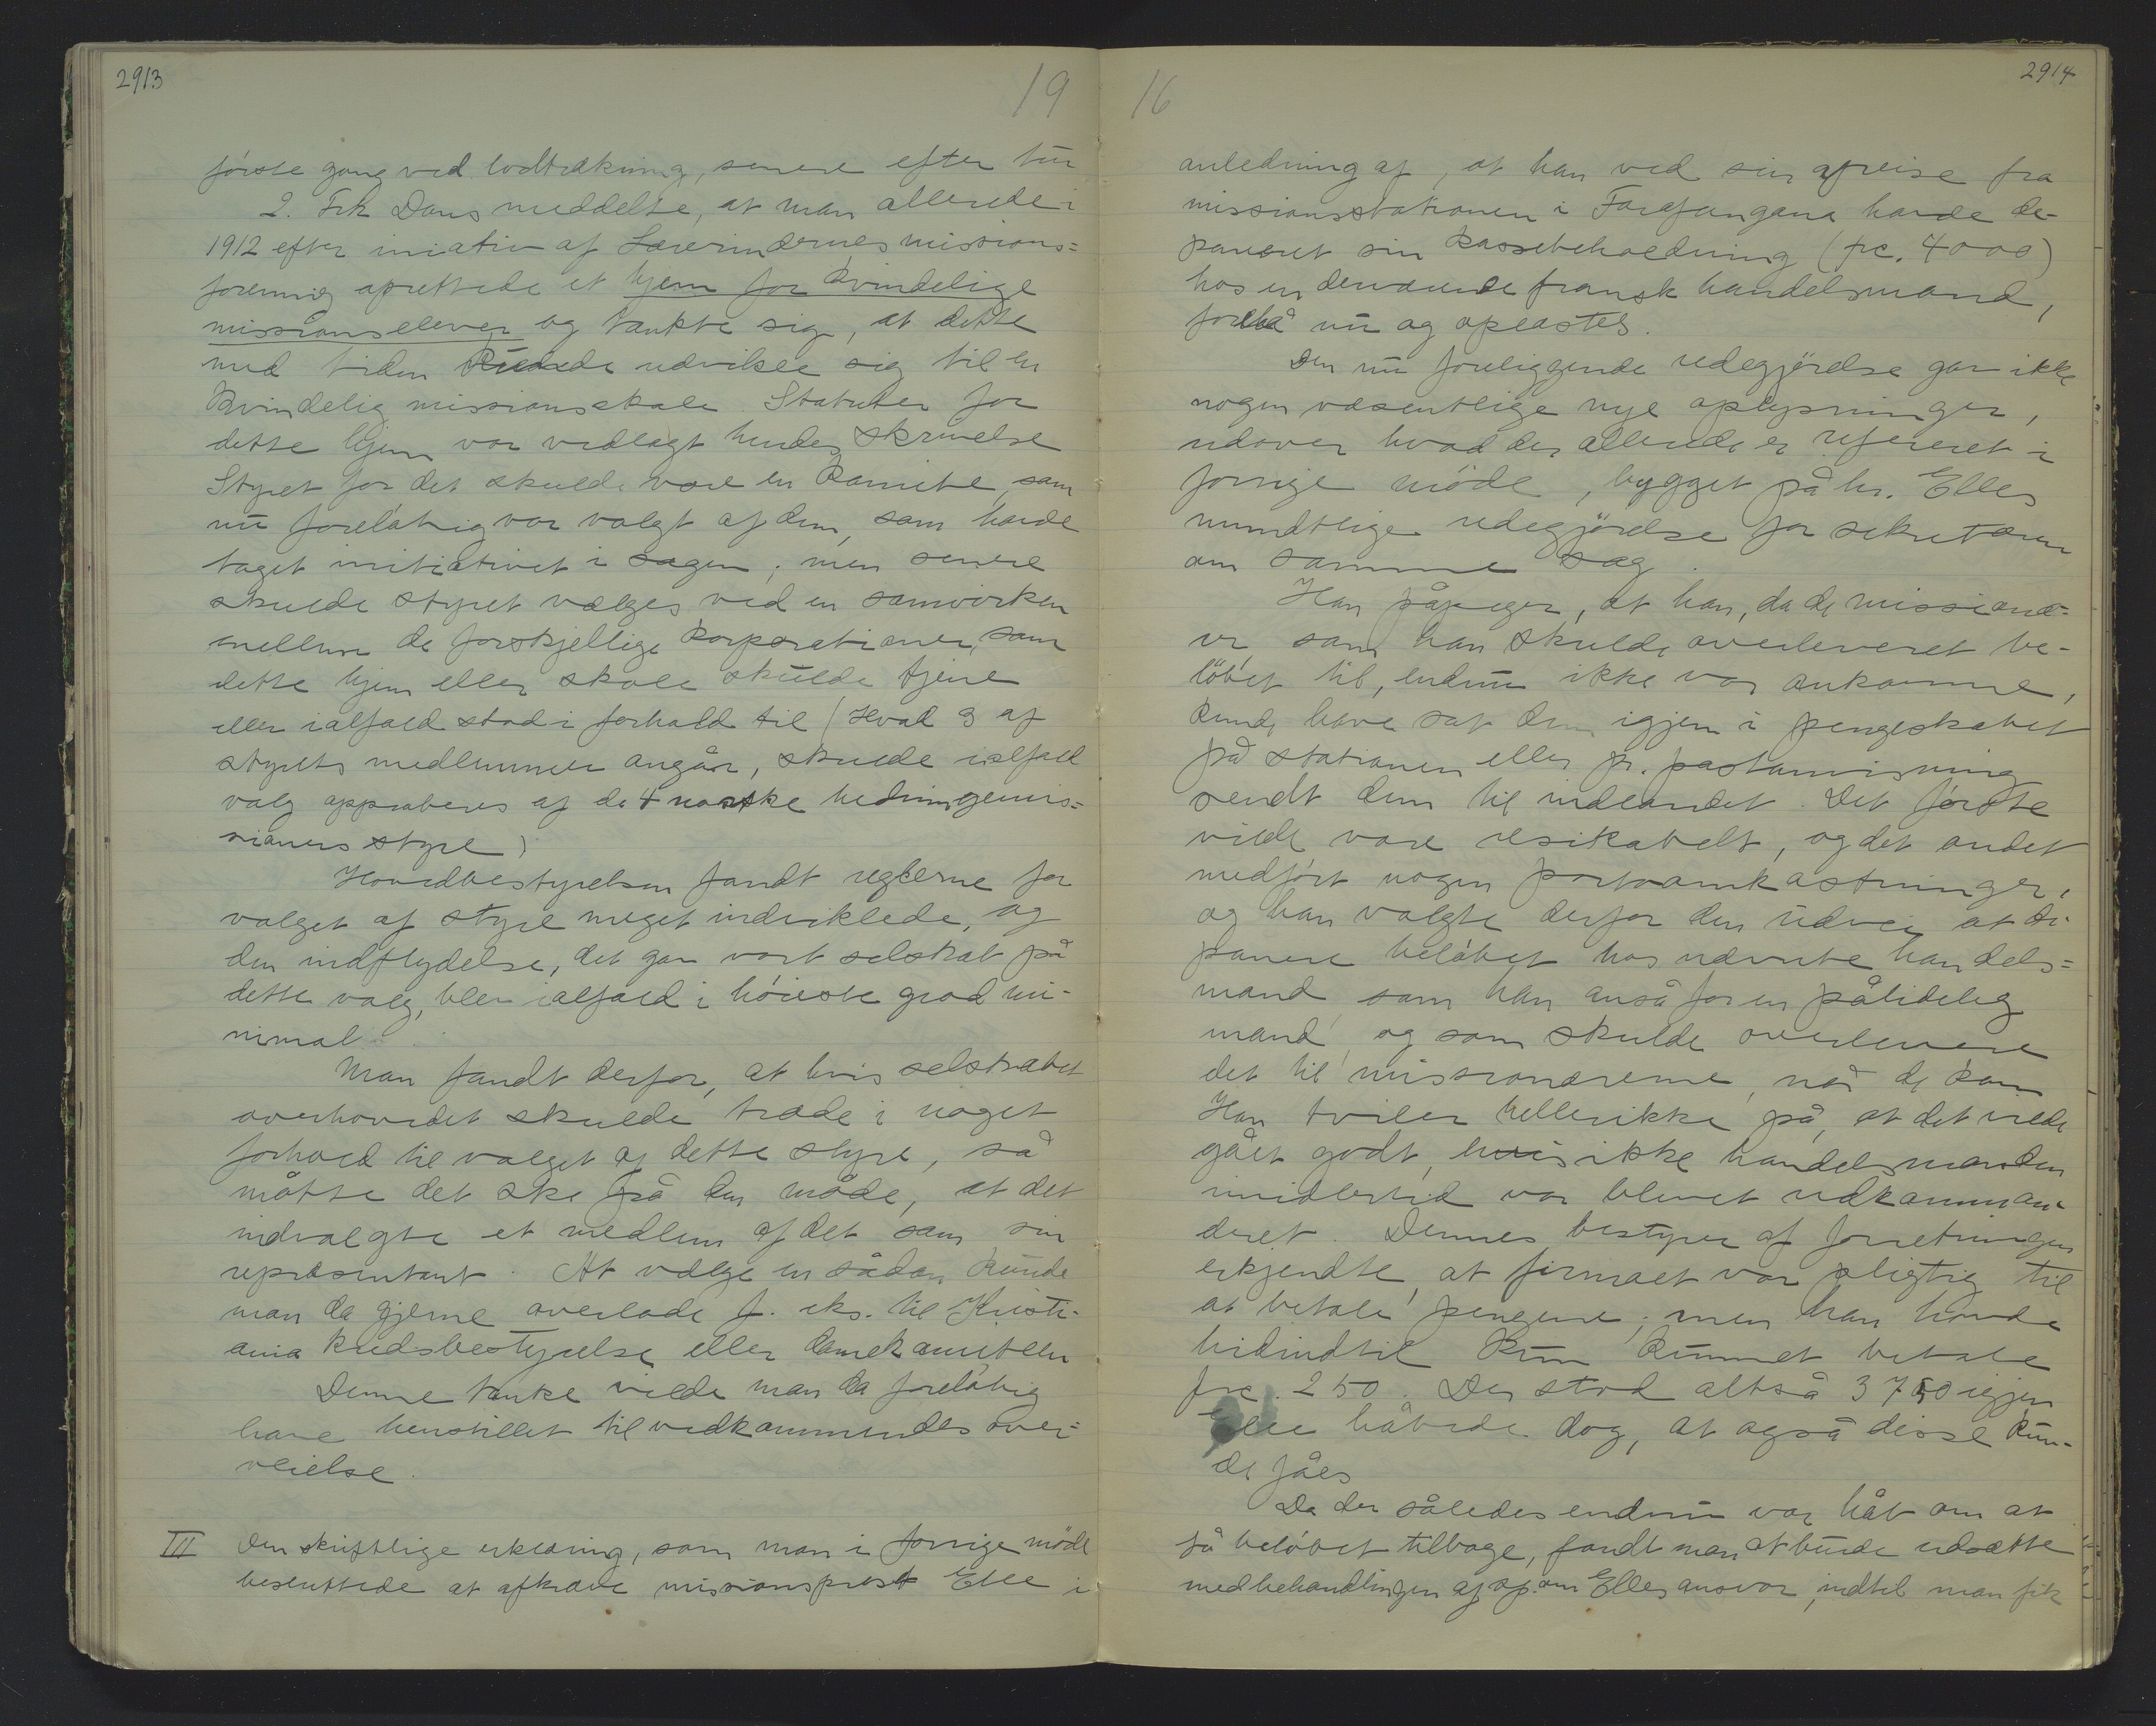 2913
19
første gang ved lodtrækning, senere efter tur
2. Frk Dons meddelte, at man allerede i
1912 efter iniativ af Lærerindernes missions=
forening oprettede et hjem for kvindelige
missionselever og tænkte sig, at dette
med tiden kunde udvikle sig til en
kvindelig missionsskole. Statuter for
dette hjem var vedlagt hendes skrivelse
Styret for det skulde være en komite, som
nu foreløbig var valgt af dem, som havde
taget initiativet i sagen; men senere
skulde styret vælges ved en samvirken
mellem de forskjellige korporationer, som
dette hjem eller skole skulde tjene
eller ialfald stod i forhold til (Hvad 3 af
styrets medlemmer angår, skulde ialfald
valg approberes af de 4 norske hedningemis=
sioners styre)
Hovedbestyrelsen fandt reglerne for
valget af styre meget indviklede, og
den indflydelse, det gav vort selskab på
dette valg, blev ialfald i høieste grad mi-
nimal.
Man fandt derfor, at hvis selskabet
overhovedet skulde træde i noget
forhold til valget af dette styre, så
måtte det ske på den måde, at det
indvalgte et medlem af det som sin
repræsentant. At vælge en sådan kunde
man da gjerne overlade f. eks. til Kristi-
ania kredsbestyrelse eller damekomiteen
Denne tanke vilde man da foreløbig
have henstillet til vedkommendes over=
veielse.
III Den skriftlige erklæring, som man i forrige møde
besluttede at afkræve missionsprest Elle i
16
2914
anledning af, at han ved sin afreise fra
missionsstationen i Farafangana havde de-
poneret sin kassebeholdning (frc. 4000)
hos en derværende fransk handelsmand,
forelå nu og oplæstes.
Den nu foreliggende redegjørelse gav ikke
nogen væsentlige nye oplysninger,
udover hvad der allerede er refereret i
forrige møde, bygget på hr. Elles
mundtlige redegjørelse for sekretæren
om samme sag.
Han påpeger, at han, da de missionæ-
rer som han skulde overleveret be-
løbet til, endnu ikke var ankomne,
kunde have sat dem igjen i pengeskabet
på stationen eller pr. postanvisning
sendt dem til indlandet. Det første
vilde være resikabelt, og det andet
medført nogen portoomkostninger,
og han valgte derfor den udvei at de-
ponere beløbet hos nævnte handels=
mand som han anså for en pålidelig
mand, og som skulde overlevere
det til missionærerne, når de kom
Han tviler hellerikke på, at det vilde
gået godt, hvis ikke handelsmanden
imidlertid var blevet udkomman-
deret. Dennes bestyrer af forretningen
erkjendte, at firmaet var pligtig til
at betale pengene; men han havde
hidindtil kun kunnet betale
frc. 250. Der stod altså 3750 igjen
Elle håbede dog, at også disse kun-
de fåes
Da der således endnu var håb om at
få beløbet tilbage, fandt man at burde udsætte
med behandlingen af sp. om Elles ansvar, indtil man fik